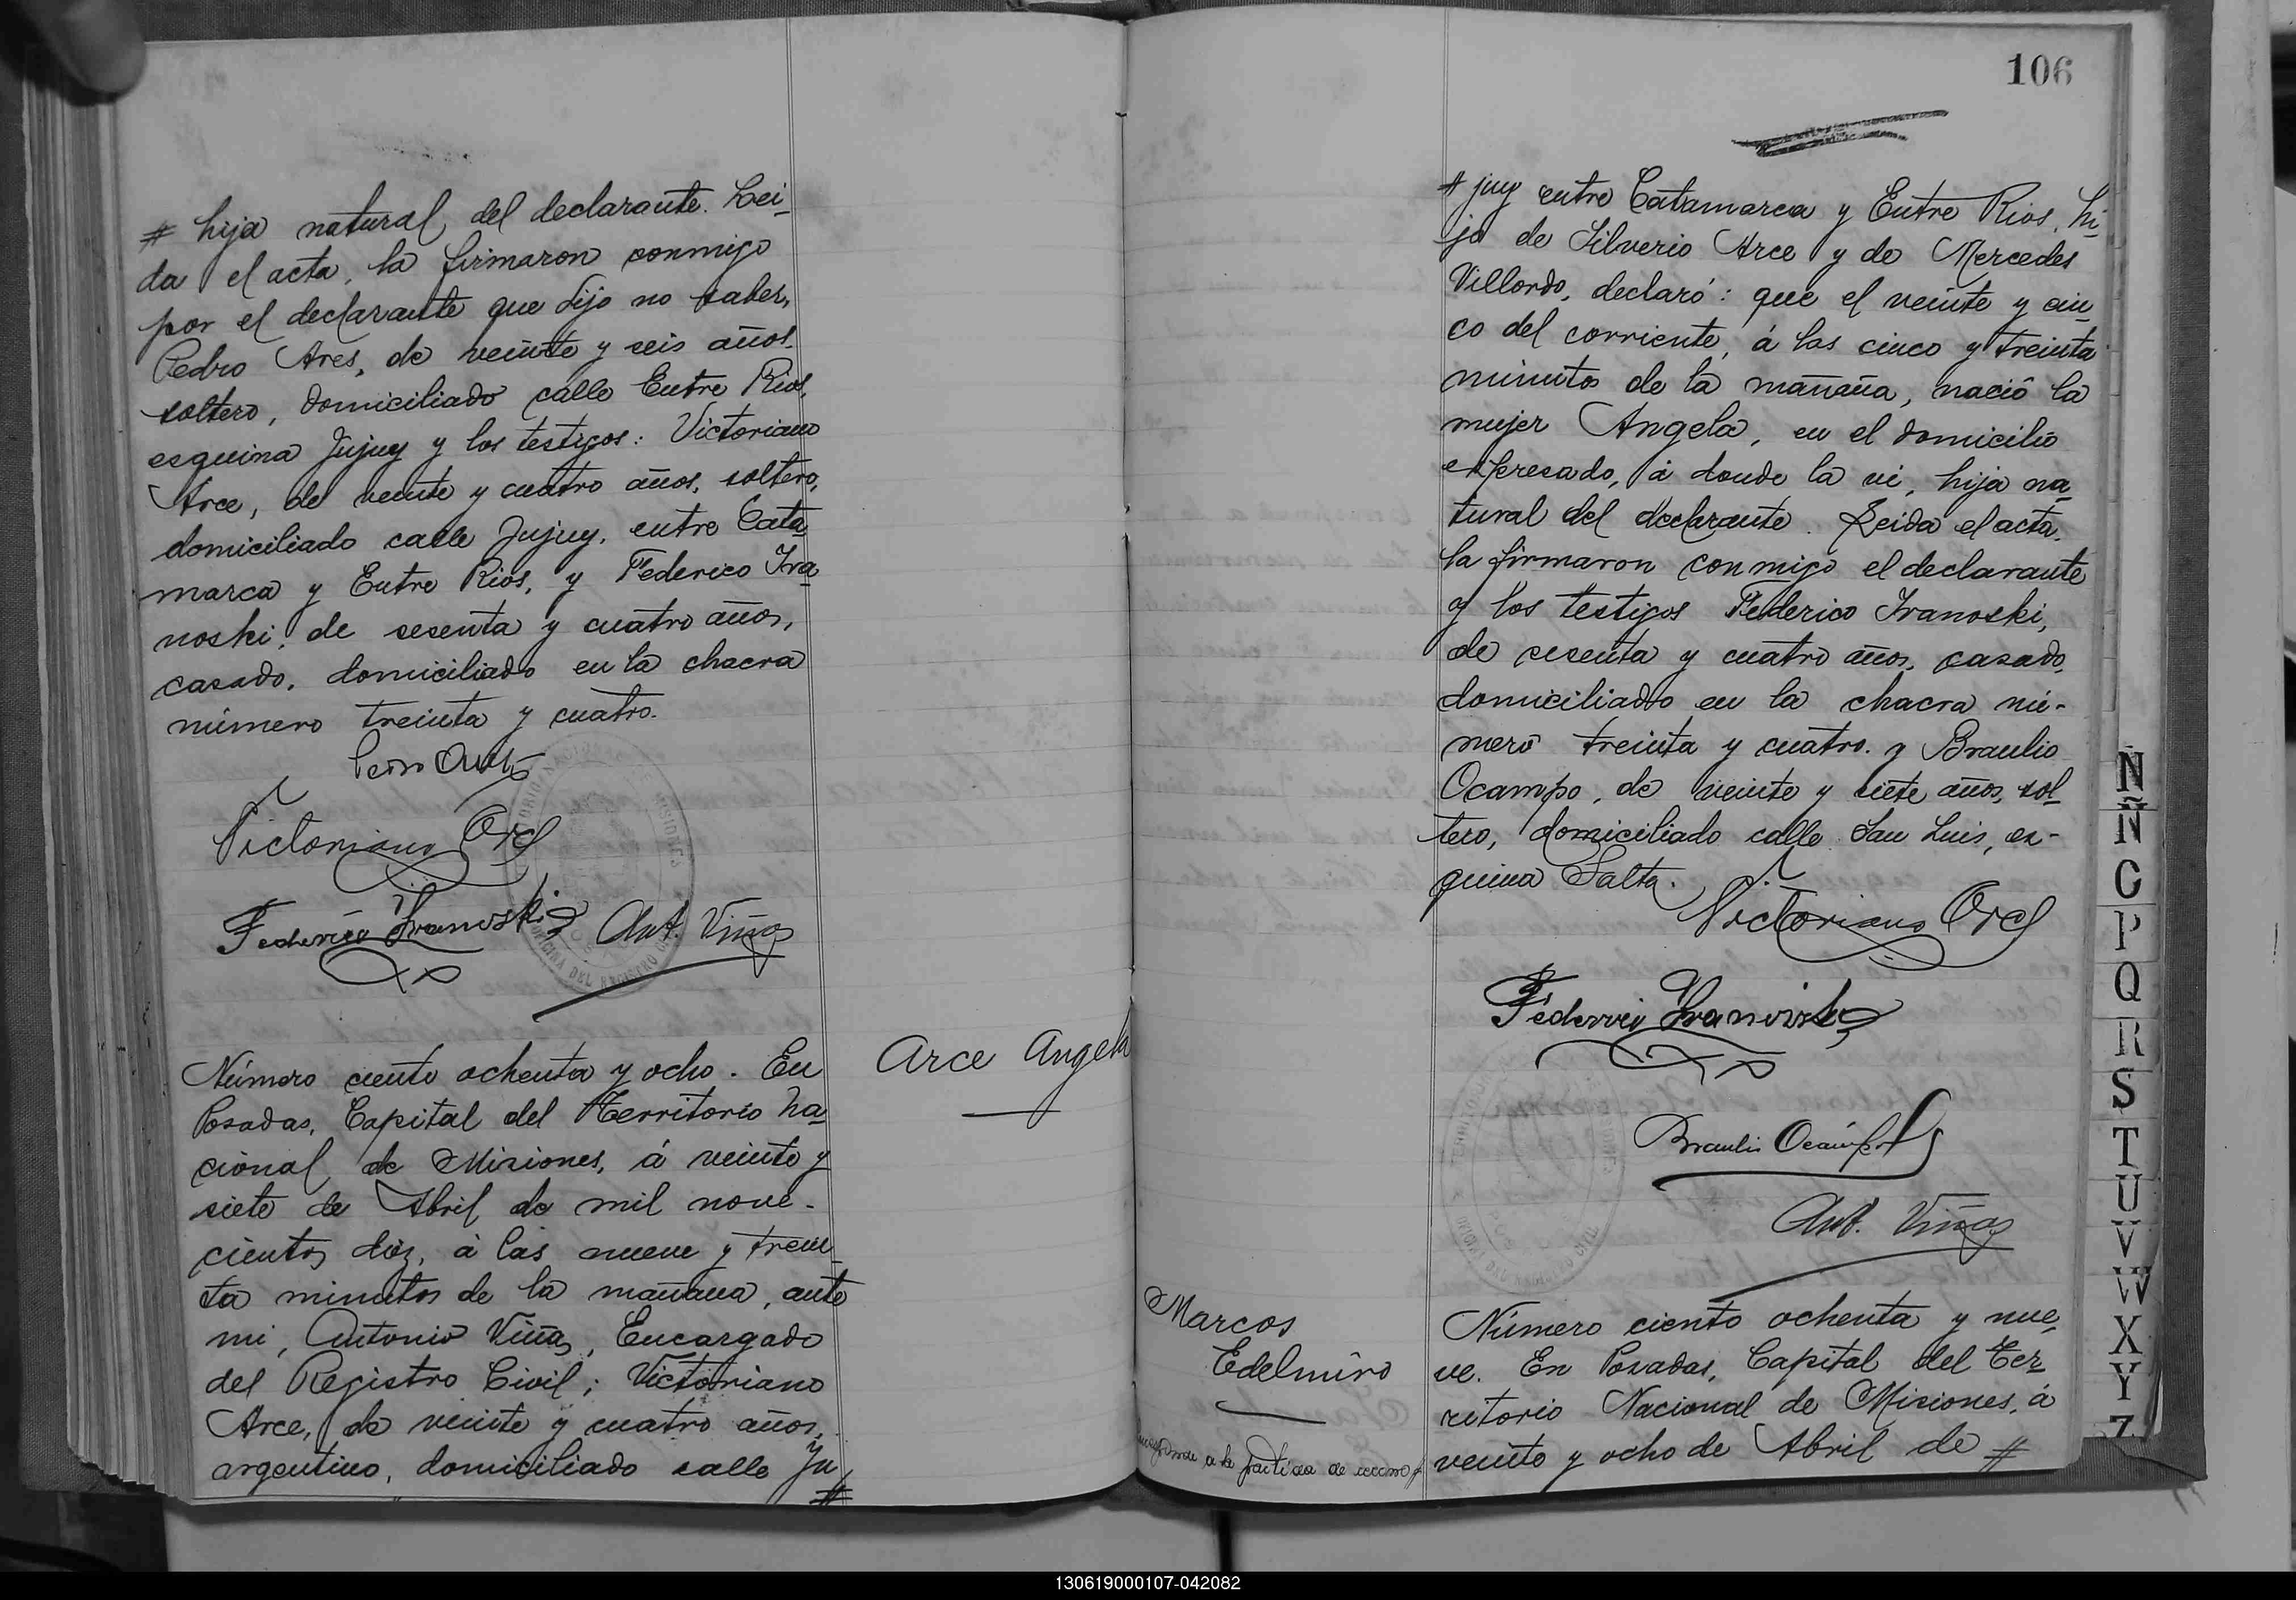 # hija natural del declarante. Lei-
da el acta, la firmaron conmigo
por el declarante que dijo no saber,
Pedro Ares, de veinte y seis años,
soltero, domiciliado calle Entre Rios,
esquina Jujuy y los testigos: Victoriano
Arce, de veinte y cuatro años, soltero,
domiciliado calle Jujuy, entre Cata
marca y Entre Rios, y Federico Iva
noski, de sesenta y cuatro años,
casado, domiciliado en la chacra
número treinta y cuatro.
Victoriano Arce
Federico Ivanoski Ant. Viñas
Número ciento ochenta y ocho. En
Posadas, Capital del Territorio Na
cional de Misiones, á veinte y
siete de Abril de mil nove-
cientos diez, á las nueve y trein
ta minutos de la mañana, ante
mi, Antonio Viñas, Encargado
del Registro Civil; Victoriano
Arce, de veinte y cuatro años,
argentino, domiciliado calle Ju
#
Arce Angela
106
# juy entre Catamarca y Entre Rios, hi-
jo de Silverio Arce y de Mercedes
Villordo, declaró: que el veinte y cin
co del corriente, á las cinco y treinta
minutos de la mañana, nació la
mujer Angela, en el domicilio
expresado, á donde la vi, hija na
tural del declarante. Leida el acta,
la firmaron conmigo el declarante
y los testigos Federico Ivanoski,
de sesenta y cuatro años, casado,
domiciliado en la chacra nú-
mero treinta y cuatro. y Braulio
Ocampo, de veinte y siete años, sol
tero, domiciliado calle San Luis, es-
quina Salta.
Victoriano Arce
Federico Ivanoski
Braulio Ocampo
Ant. Viñas
Marcos
Edelmiro
a la partida de
Número ciento ochenta y nue,
ve. En Posadas, Capital del Ter
ritorio Nacional de Misiones, á
veinte y ocho de Abril de #
N
Ñ
P
Q
R
S
T
U
V
W
X
Y
Z
130619000107-042082